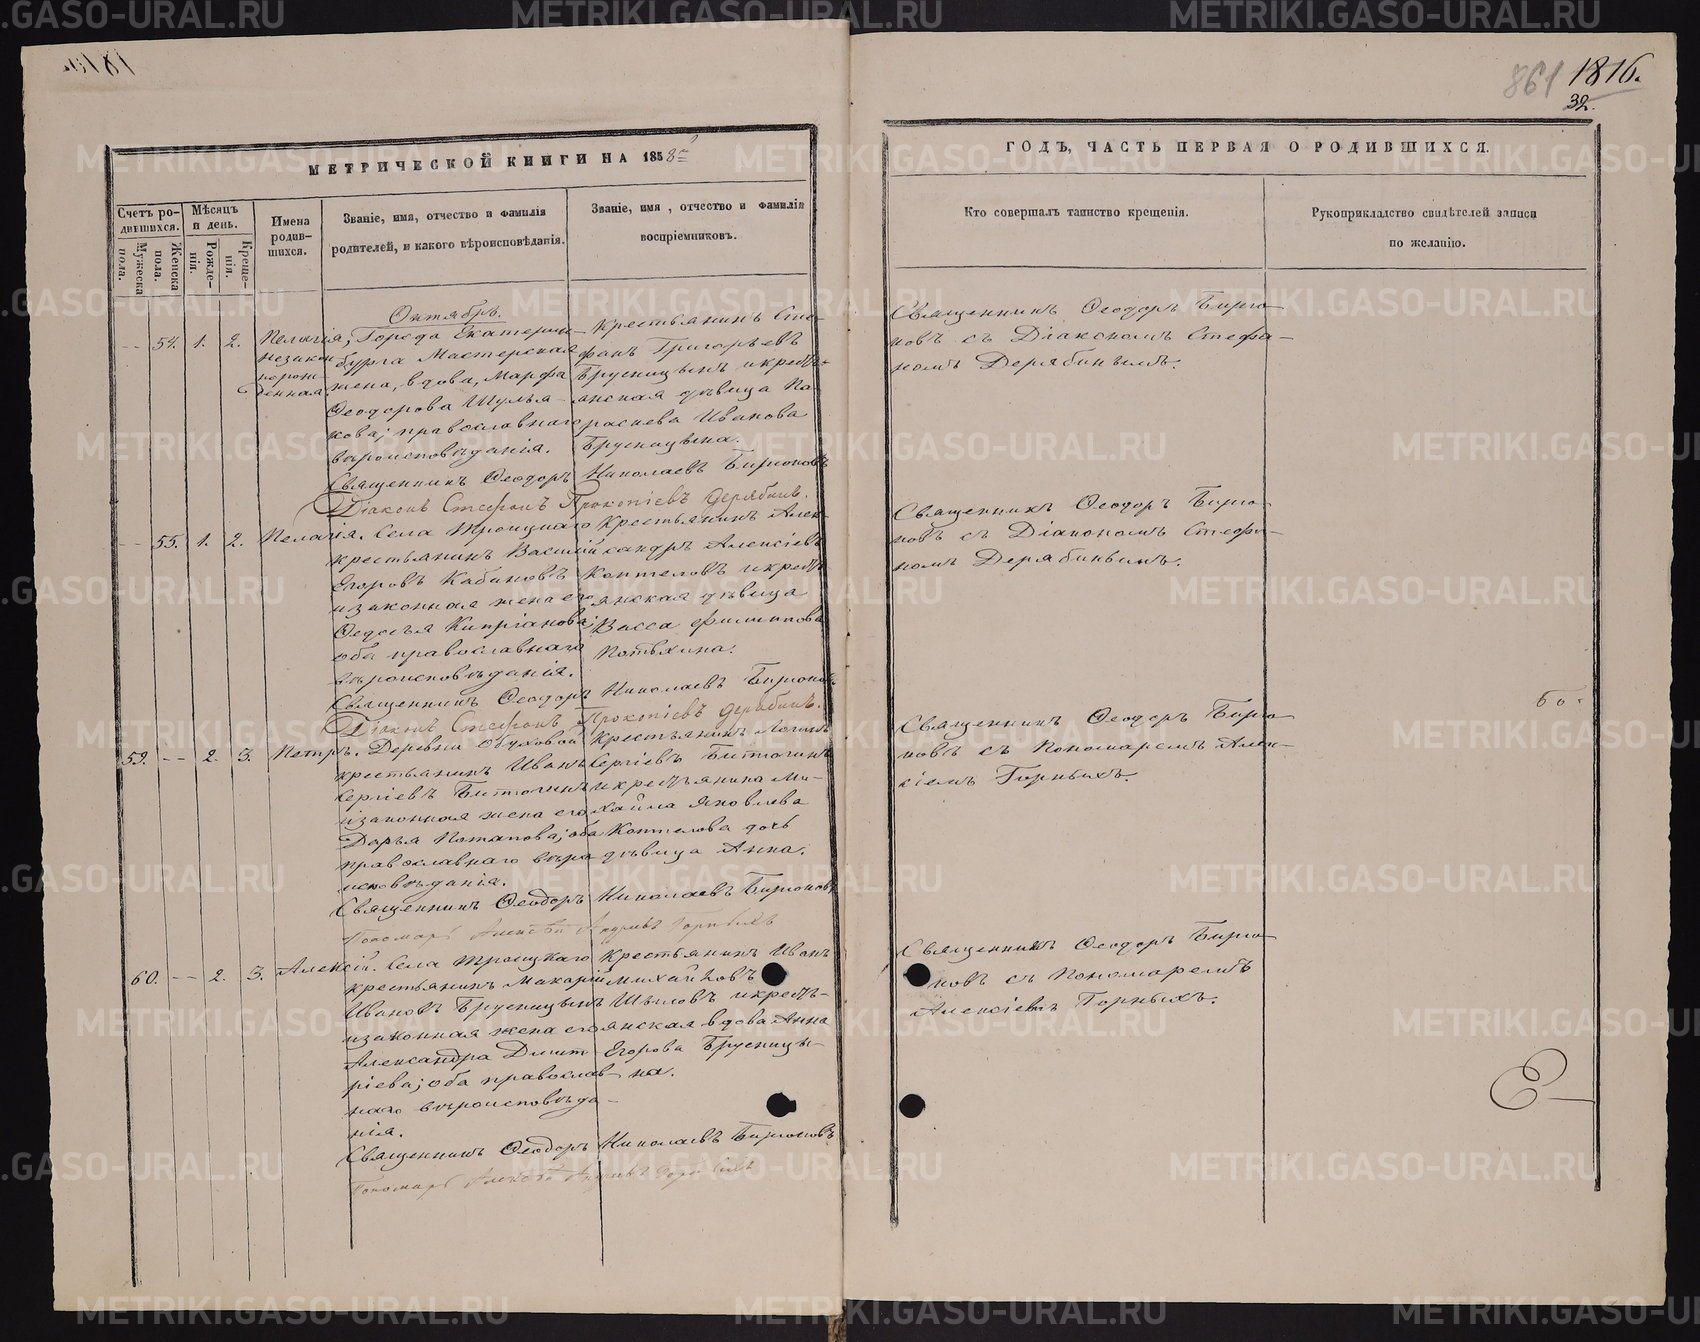 861 1816.
32.
МЕТРИЧЕСКОЙ КНИГИ НА 1858й
ГОДЪ, ЧАСТЬ ПЕРВАЯ О РОДИВШИХСЯ.
Счетъ ро-
дившихся.
Мужеска
пола.
Женска
пола.
Мѣсяцъ
и день.
Рожде-
нія.
Креще-
нія.
Имена
родив-
шихся.
Званіе, имя, отчество и фамилія
родителей, и какого вѣроисповѣданія.
Званіе, имя, отчество и фамилія
воспріемниковъ.
Кто совершалъ таинство крещенія.
Рукоприкладство свидѣтелей записи
по желанію.
Октябрь.
54. 1. 2.
Пелагія,
незакон
норож
денная.
Города Екатерин-
бурга Мастерская
жена, вдова, Марфа
Ѳеодорова Шулья-
кова; православнаго
вѣроисповѣданія.
Крестьянинъ Сте-
фанъ Григорьевъ
Брусницынъ и кресть-
янская дѣвица Па-
раскева Иванова
Брусницына.
Священникъ Ѳеодоръ Николаевъ Бирюковъ
Діаконъ Стефанъ Прокопіевъ Дерябинъ.
Священникъ Ѳеодоръ Бирю-
ковъ съ Діакономъ Стефа-
номъ Дерябинымъ.
55. 1. 2.
Пелагія.
Села Троицкаго
крестьянинъ Василій
Егоровъ Кабановъ
и законная жена его
Ѳедосья Кипріанова;
оба православнаго
вѣроисповѣданія.
Крестьянинъ Алек-
сандръ Алексіевъ
Коптеловъ и кресть
янская дѣвица
Васса Филиппова
Потѣхина.
Священникъ Ѳеодоръ Николаевъ Бирюковъ
Діаконъ Стефанъ Прокопіевъ Дерябинъ.
Священникъ Ѳеодоръ Бирю-
ковъ съ Діакономъ Стефа-
номъ Дерябинымъ.
59. 2. 3.
Петръ.
Деревни Обуховой
крестьянинъ Иванъ
Сергіевъ
и законная жена его
Дарья Потапова; оба
православнаго вѣро
исповѣданія.
Крестьянинъ
Сергіевъ
и крестьянина Ми-
хаила Яковлева
Коптелова дочь
дѣвица Анна.
Священникъ Ѳеодоръ Николаевъ Бирюковъ
Пономарь Алексѣй Андреевъ Горныхъ
Священникъ Ѳеодоръ Бирю-
ковъ съ Пономаремъ Алек-
сіемъ Горныхъ.
60. 2. 3.
Алексій.
Села Троицкаго
крестьянинъ Макарій
Ивановъ Брусницынъ
и законная жена его
Александра Димит
ріева; оба православ-
наго вѣроисповѣда-
нія.
Крестьянинъ Иванъ
Михайловъ
Шиловъ и кресть-
янская вдова Анна
Егорова Брусницы-
на.
Священникъ Ѳеодоръ Николаевъ Бирюковъ
Пономарь Алексѣй Андреевъ Горныхъ
Священникъ Ѳеодоръ Бирю-
ковъ съ Пономаремъ
Алексіемъ Горныхъ.
METRIKI.GASO-URAL.RU